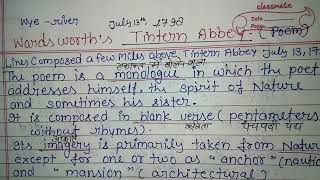 classmate
Date
Page
Wye - river July 13th 1798
Wordsworth's Tintern Abbey. (Poem)
Lines Composed a few Miles above Tintern Abbey July 13, 17
The poem is a monologue in which the poet
addresses himself, the spirit of Nature
and sometimes his sister.
It is composed in blank verse (pentameters
without rhymes).
Its imagery is primarily taken from Nature
except for one or two as "anchor" (nautic
and "mansion" (architectural)